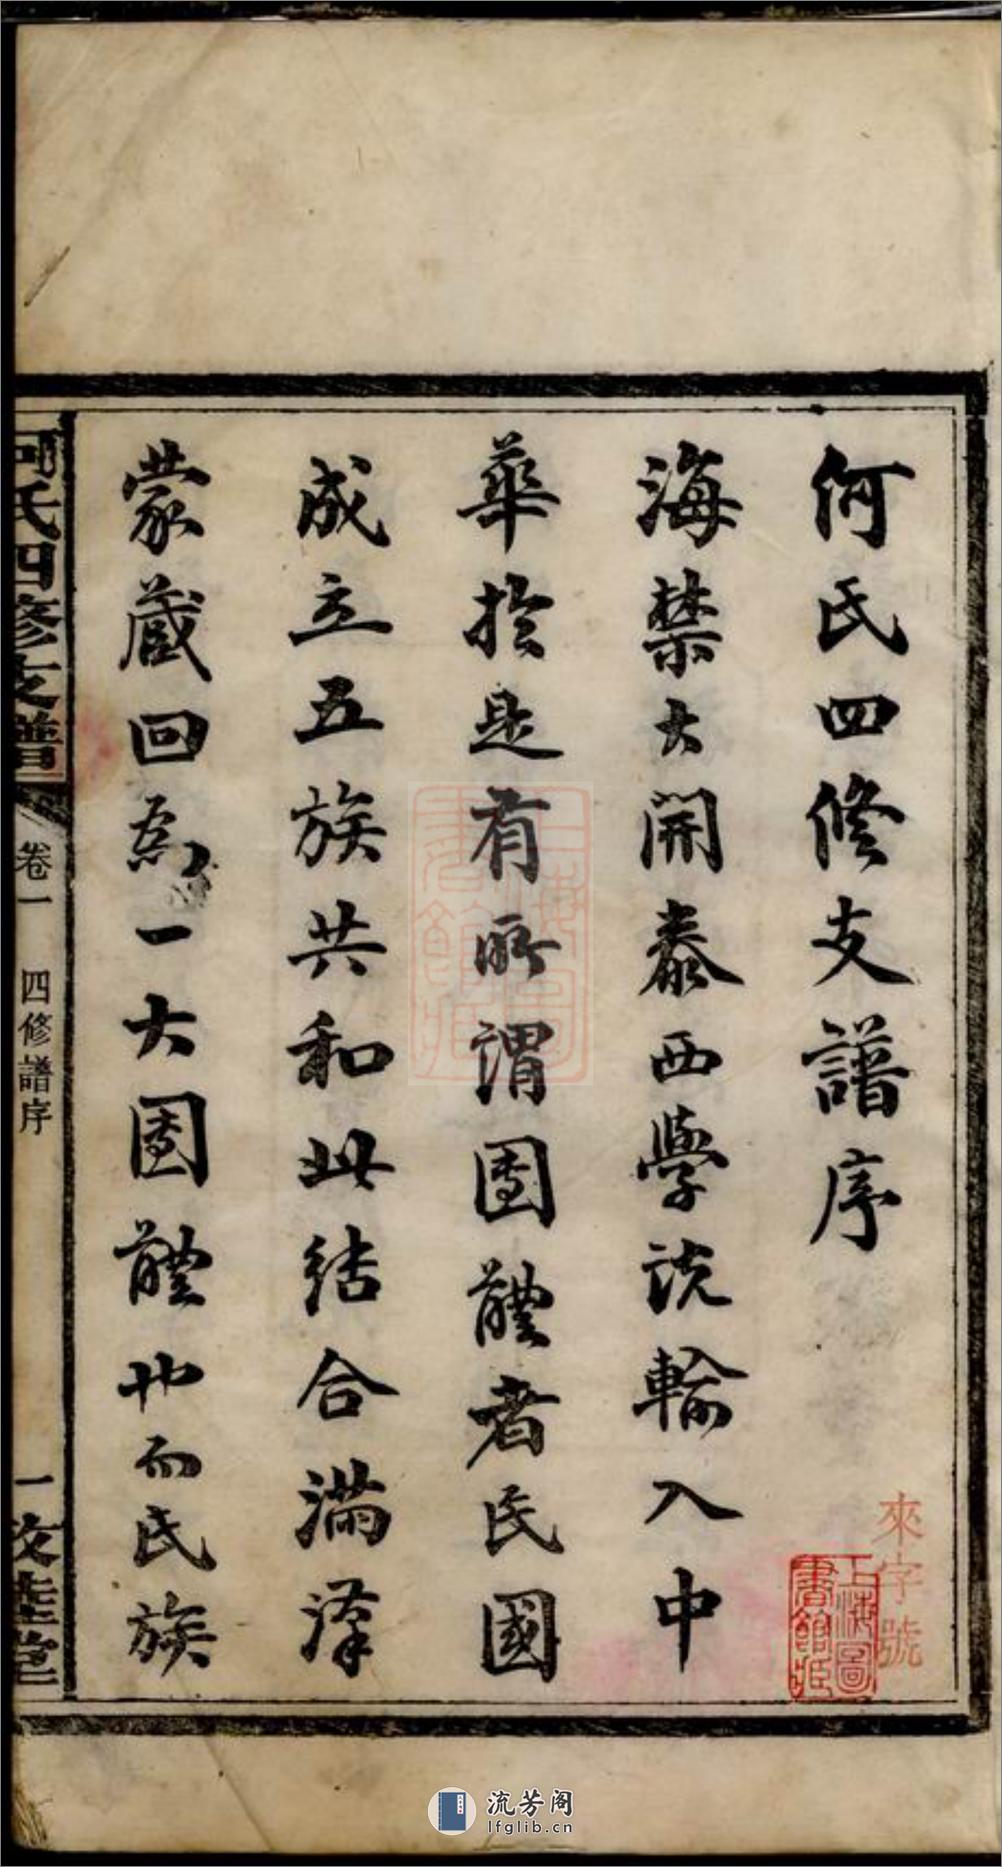 何氏四修支譜序
海禁大開泰西學說輸入中
華於是有所謂團體者民國
成立五族共和此結合滿漢
蒙藏回爲一大團體也而民族
何氏四修支譜
卷一
四修譜序
一
敦堂
來字號
上海圖書館藏
上海圖書館藏
流芳阁
lfglib.cn